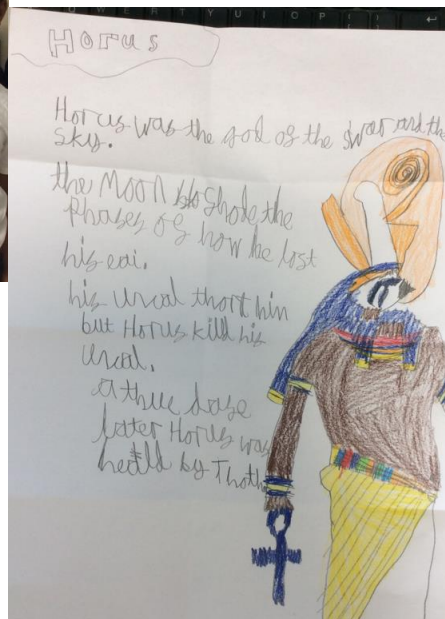 Horus
Horus was the god of the swor and the
sky.
the Moon shode the
phases of how he lost
his eai.
his uncal thort him
but Horus kill his
uncal.
a thue daze
later Horus was
heald by Thoth